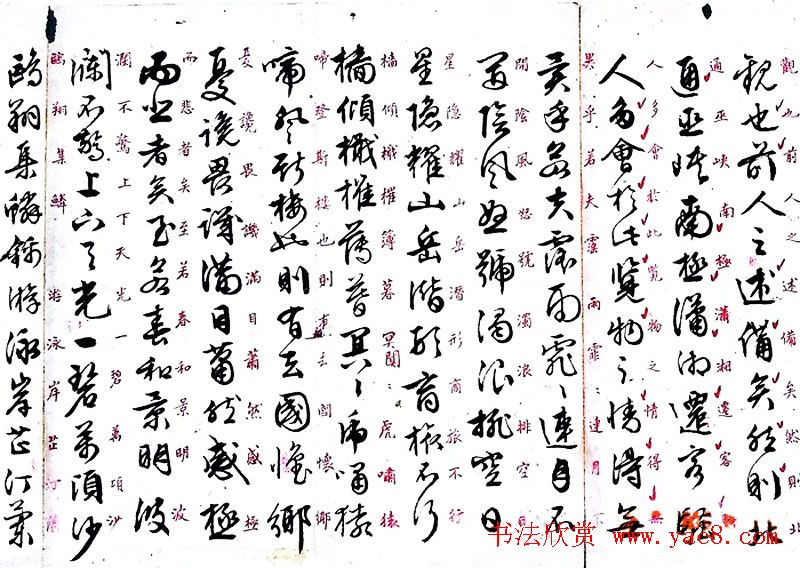 觀也前人之述備矣然則北
通巫峽南極瀟湘遷客騷
人多會於此覽物之情得無
異乎若夫霪雨霏〻連月不
開陰風怒號濁浪排空日
星隱耀山岳潛形商旅不行
檣傾檝摧薄暮冥〻虎嘯猿
啼登斯樓也則有去國懷鄉
憂讒畏譏滿目蕭然感極
而悲者矣至若春和景明波
瀾不驚上下天光一碧萬頃沙
鷗翔集鱗錦游泳岸芷汀蘭
书法欣赏 www.yac8.com